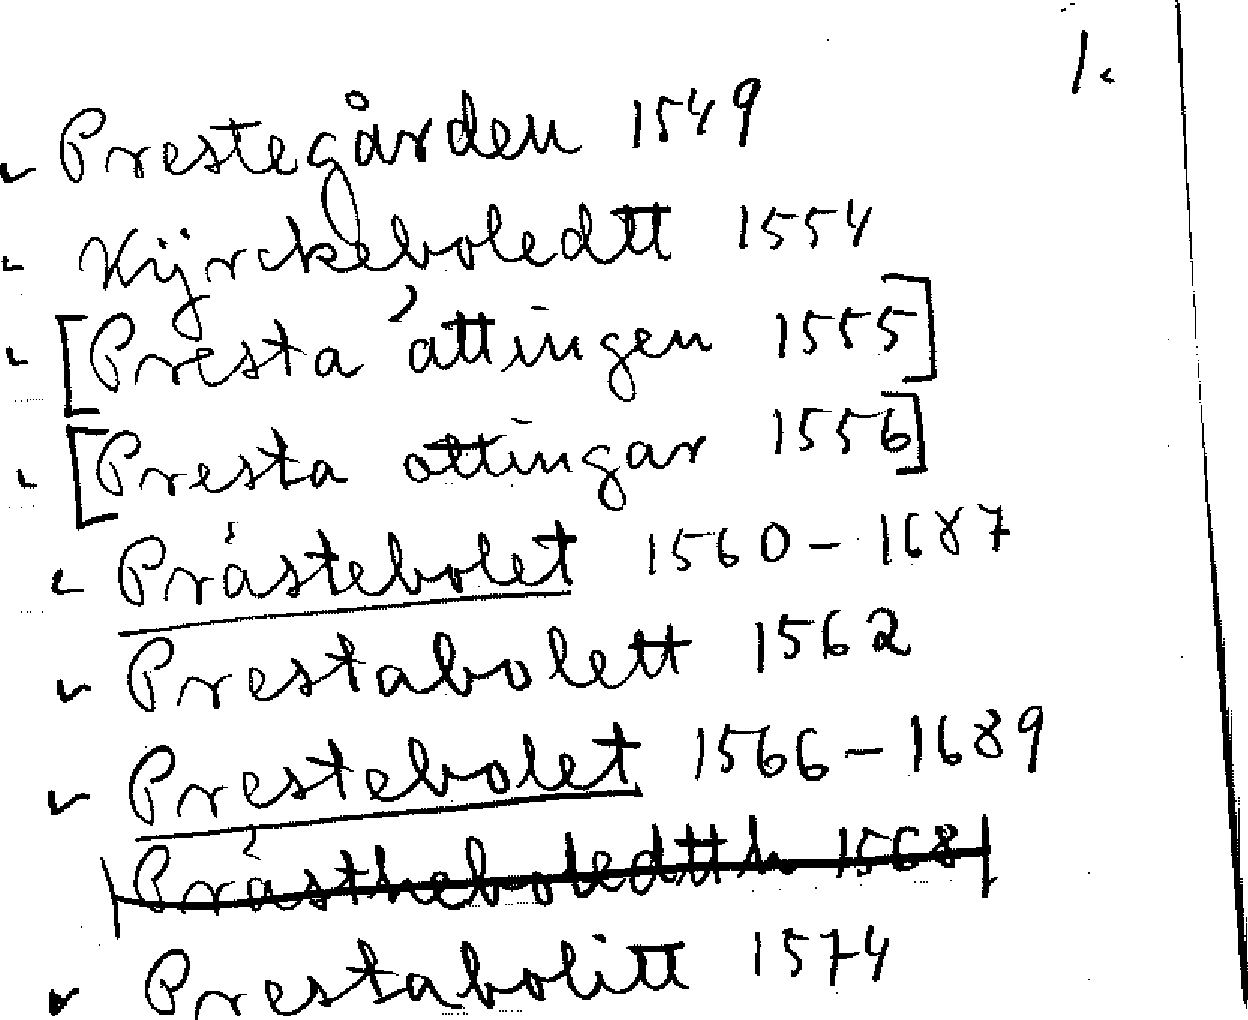 1.
Prestegården 1549
Kÿrckeboledtt 1554
[Presta åttingen 1555]
[Presta ottingar 1556]
Prästebolet 1560-1687
Prestabolett 1562
Prestebolet 1566-1689
Prästheboledtth 1568
Prestabolitt 1574